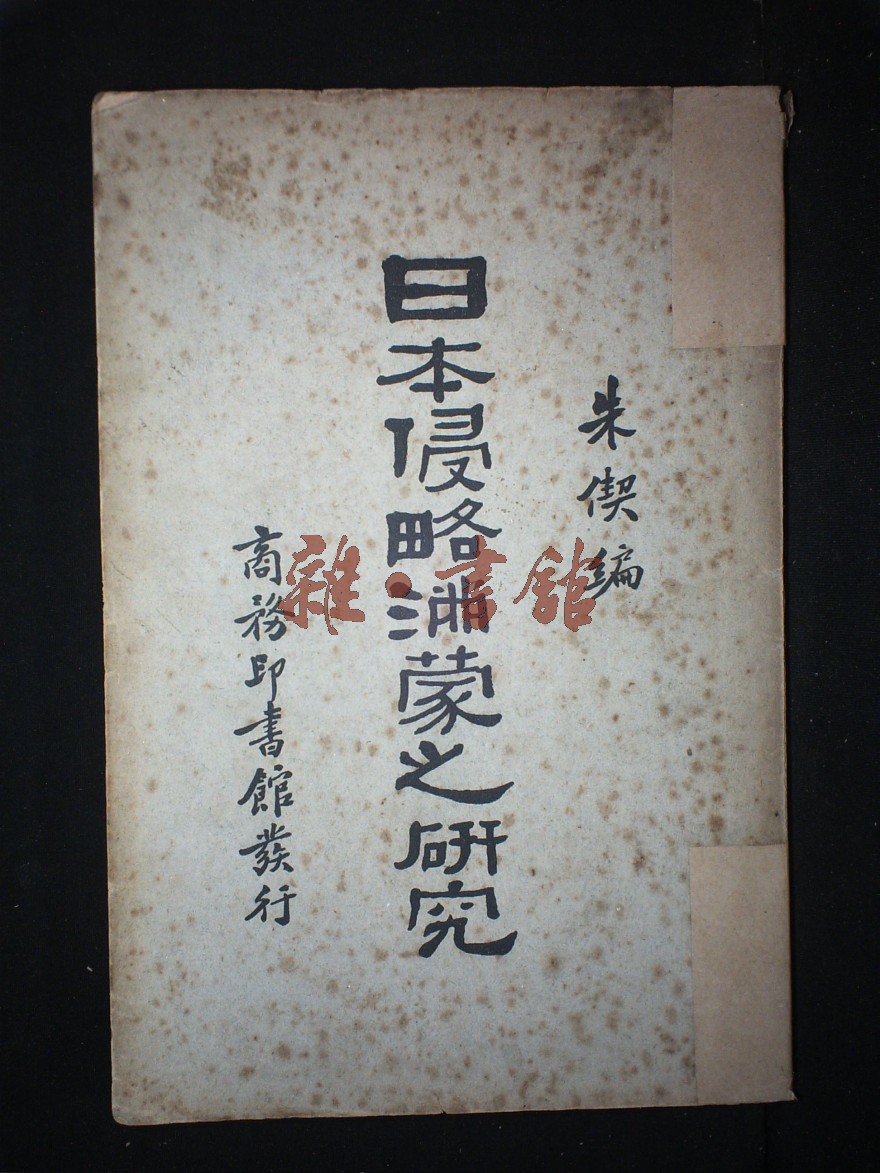 朱偰編
日本侵略滿蒙之研究
商務印書館發行
雜·書館